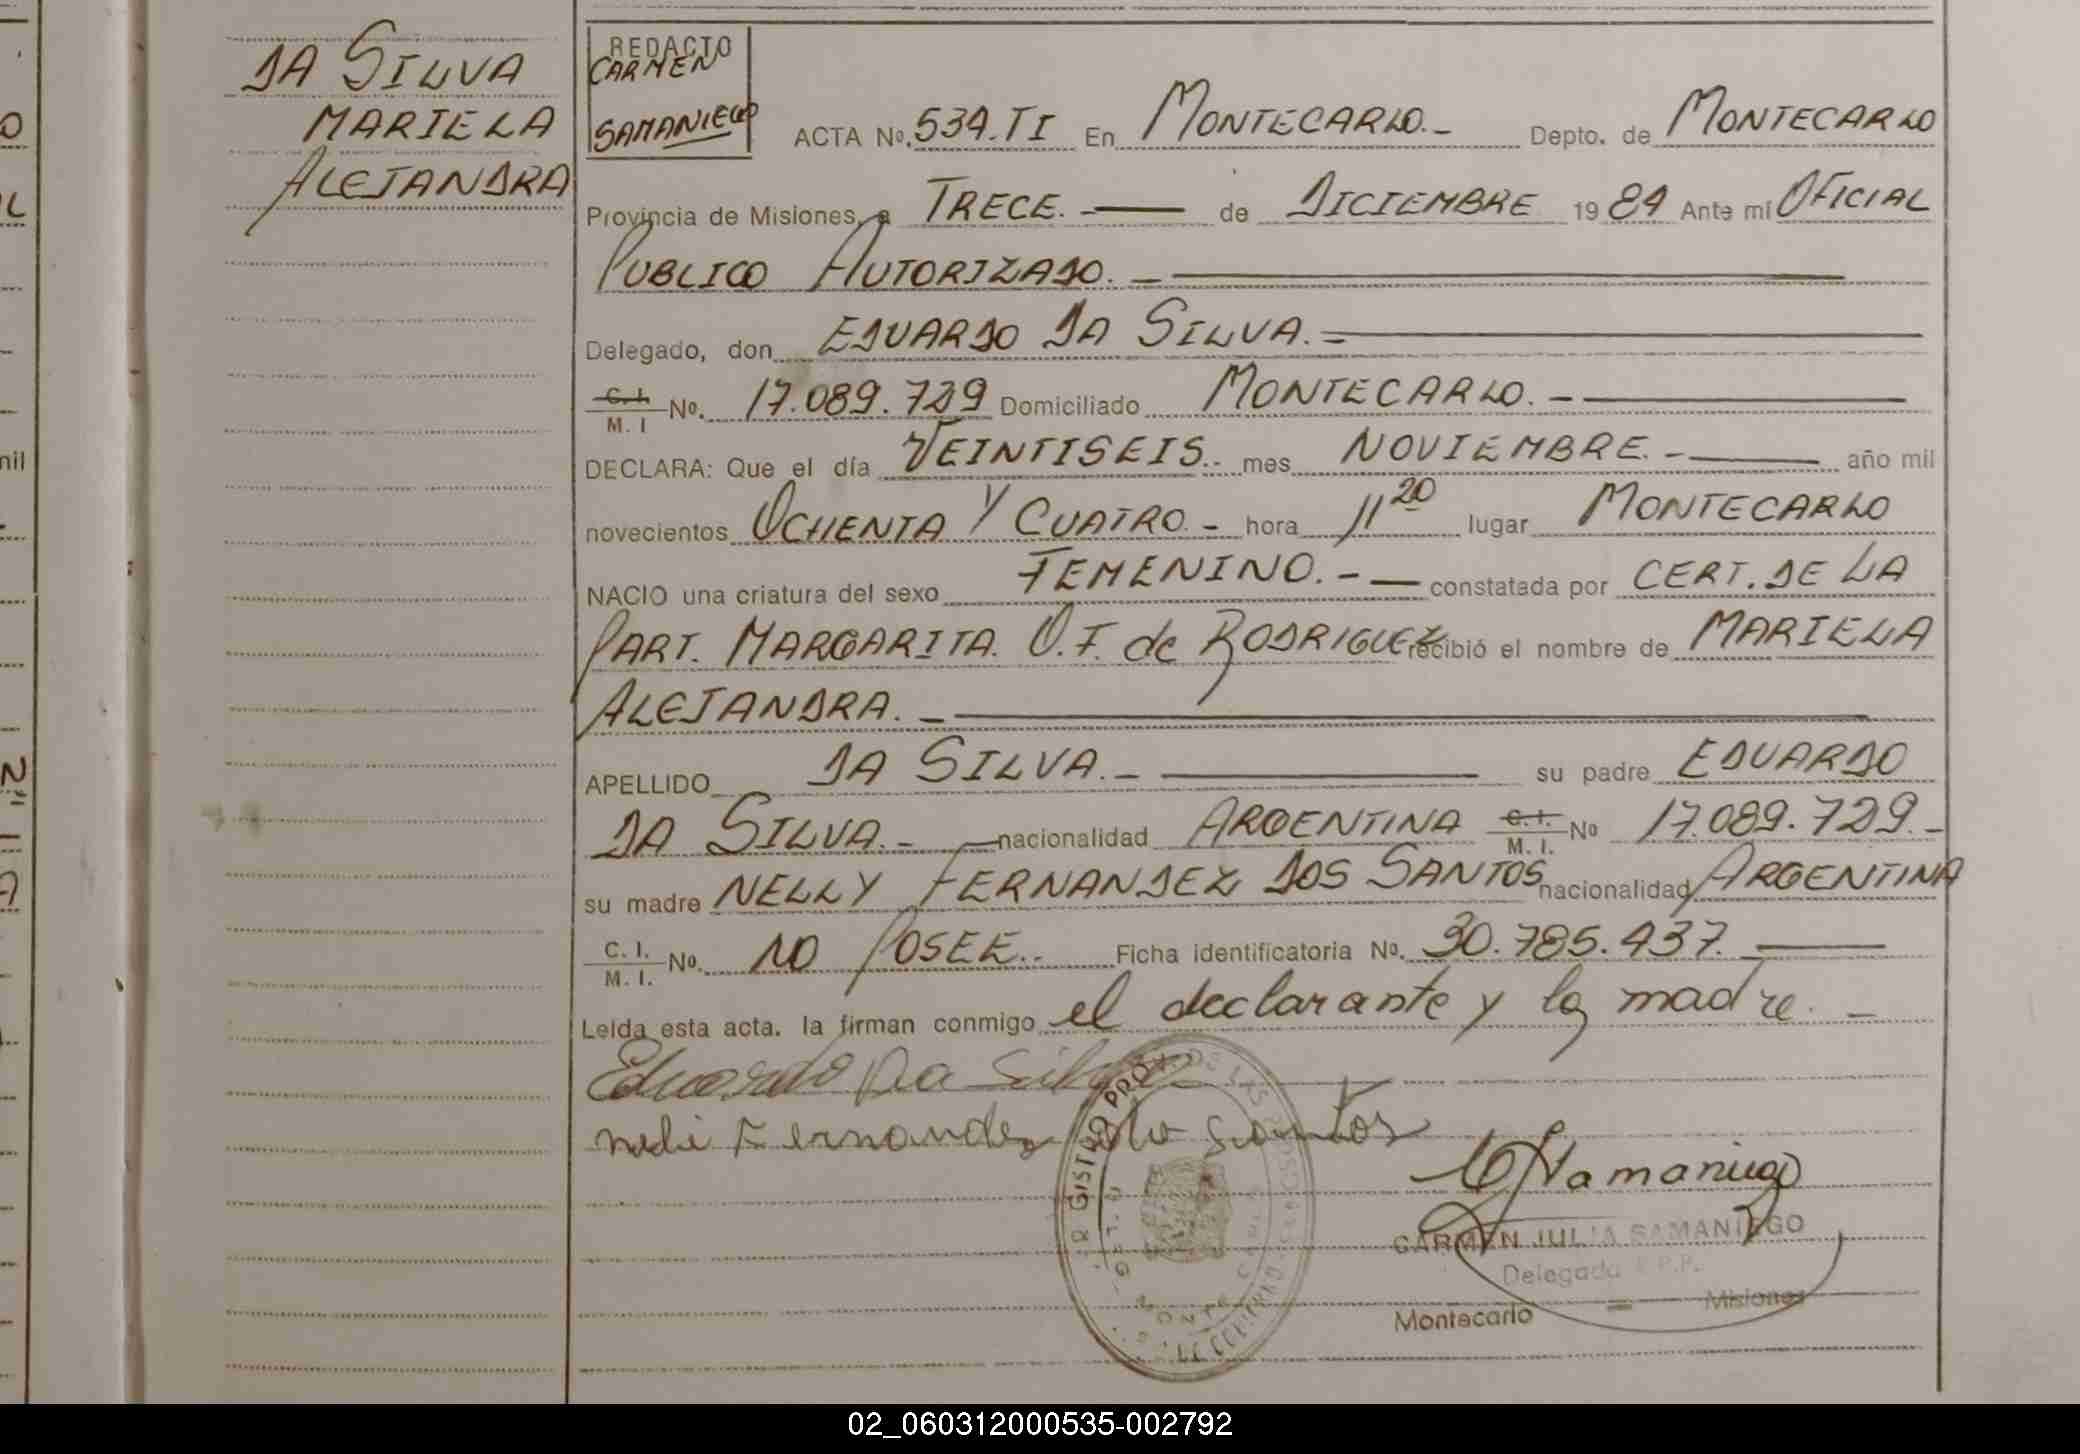 DA SILVA
MARIELA
ALEJANDRA
REDACTO
CARMEN
SAMANIEGO
ACTA Nº. 534.TI En MONTECARLO.- Depto. de MONTECARLO
Provincia de Misiones, a TRECE.- de DICIEMBRE 1984 Ante mí OFICIAL
PUBLICO AUTORIZADO.-
Delegado, don EDUARDO DA SILVA.-
C. I. / M. I Nº. 17.089.729 Domiciliado MONTECARLO.-
DECLARA: Que el día VEINTISEIS.- mes NOVIEMBRE.- año mil
novecientos OCHENTA Y CUATRO.- hora 11 20 lugar MONTECARLO
NACIO una criatura del sexo FEMENINO.- constatada por CERT. DE LA
PART. MARGARITA. O.F. de RODRIGUEZ recibió el nombre de MARIELA
ALEJANDRA.-
APELLIDO DA SILVA.- su padre EDUARDO
DA SILVA.- nacionalidad ARGENTINA C. I. / M. I. Nº 17.089.729.-
su madre NELLY FERNANDEZ DOS SANTOS nacionalidad ARGENTINA
C. I. / M. I. Nº. NO POSEE.. Ficha identificatoria Nº. 30.785.437.
Leída esta acta. la firman conmigo el declarante y la madre.-
Eduardo Da Silva
neli Fernandez do santos
CSamaniego
CARMEN JULIA SAMANIEGO
Delegada
Montecarlo - Misiones
02_060312000535-002792